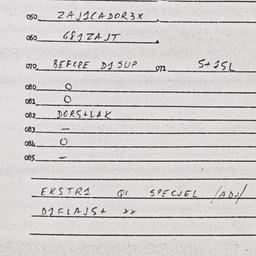 050 ZAJ1CADOR3X .
060 G81ZAJT .
070 BEFCPE D1SUP 071 S+15L
080 O
081 O
082 DORS+LAK
083 —
084 O
085 —
EKSTR1 Q1 SPECJEL /ADJ/
D1FLAJS+ **